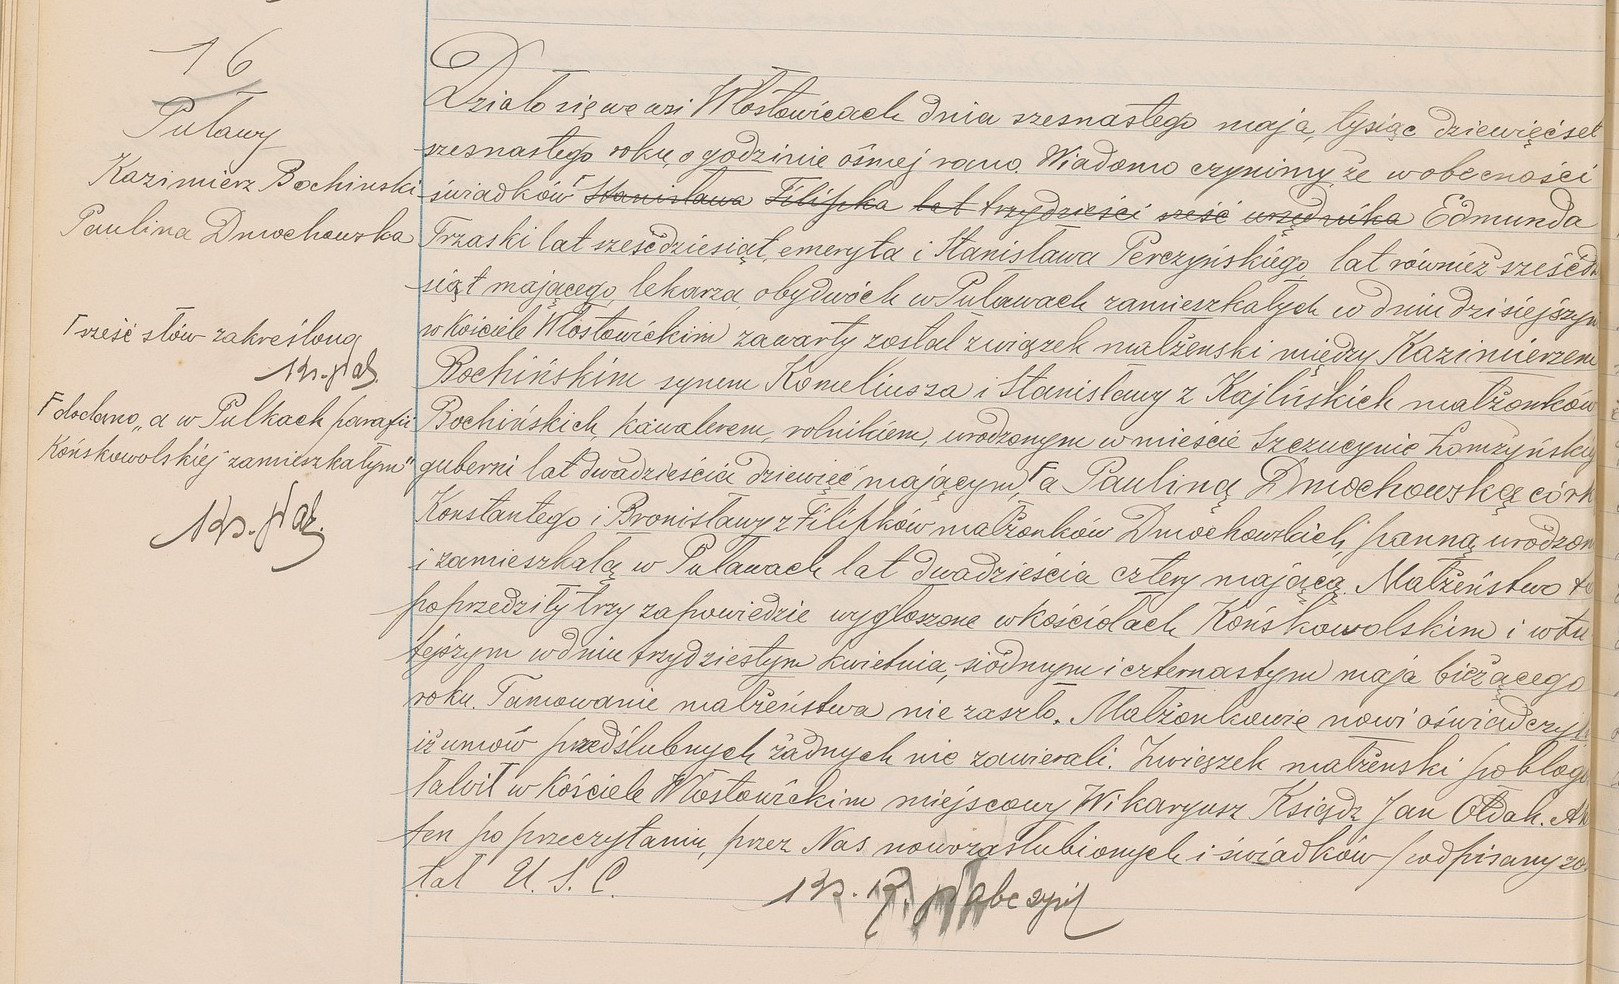 16
Puławy
Kazimierz Bochinski
Paulina Dmochowska
Γ sześć słów zakreślono
Γ dodano „a w Pulkach parafii
Końskowolskiej zamieszkałym"
Działo się we wsi Włostowicach dnia szesnastego maja, tysiąc dziewięćset
szesnastego roku, o godzinie ósmej rano. Wiadomo czynimy, że w obecności
świadków Γ Stanisława Filipka lat trzydzieści sześć urzędnika Edmunda
Trzaski lat sześćdziesiąt, emeryta i Stanisława Perczyńskiego, lat również sześćdzie
siąt mającego, lekarza, obydwóch w Puławach zamieszkałych w dniu dzisiejszym
w kościele Włostowickim zawarty został związek małżenski między Kazimierzem
Bochińskim synem Korneliusza i Stanisławy z Kajlińskich małżonków
Bochińskich, kawalerem, rolnikiem, urodzonym w mieście Szczuczynie Łomżyńskiej
guberni lat dwadzieścia dziewięć mającym, Γ a Pauliną Dmochowską córk
Konstantego i Bronisławy z Filipków małżonków Dmochowskich, panną, urodzon
i zamieszkałą w Puławach lat dwadzieścia cztery mającą. Małżeństwo to
poprzedziły trzy zapowiedzie wygłoszone w kościołach Końskowolskim i w tu
tejszym w dniu trzydziestym kwietnia, siódmym i czternastym maja bieżącego
roku. Tamowanie małżeństwa nie zaszło. Małżonkowie nowi oświadczyli
iż umów przedślubnych żadnych nie zawierali. Związek małżenski pobłogo
sławił w kościele Włostowickim miejscowy Wikaryusz Ksiądz Jan Ołdak. Ak
ten po przeczytaniu, przez Nas, nowozaślubionych i świadków podpisany zo
stał U. S. C.